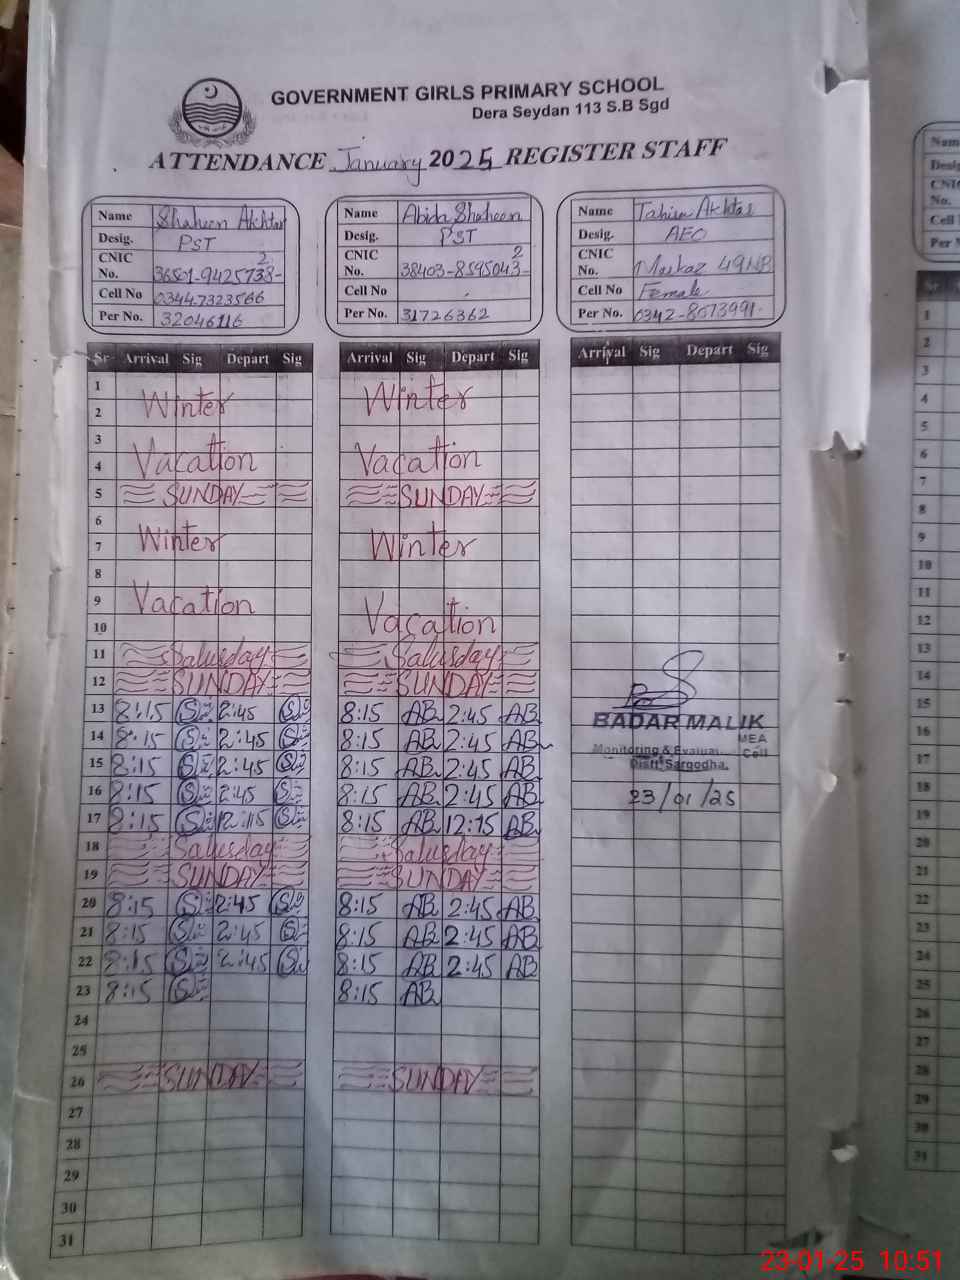 GOVERNMENT GIRLS PRIMARY SCHOOL
Dera Seydan 113 S.B Sgd
ATTENDANCE January 2025 REGISTER STAFF
Name Shaheen Akhtar
Desig. PST
CNIC No. 36501-9425738-2
Cell No 0344-7323566
Per No. 32046116
Name Abida Shaheen
Desig. PST
CNIC No. 38403-8595043-2
Cell No
Per No. 31726362
Name Tahira Akhtar
Desig. AEO
CNIC No. Markaz 49NB
Cell No Female
Per No. 0342-8673991-
Sr Arrival Sig Depart Sig Arrival Sig Depart Sig Arrival Sig Depart Sig
1
2 Winter Winter
3
4 Vacation Vacation
5 SUNDAY SUNDAY
6
7 Winter Winter
8
9 Vacation
10 Vacation
11 Saturday Saturday
12 SUNDAY SUNDAY
13 8:15 2:45 8:15 AB 2:45 AB
14 8:15 2:45 8:15 AB 2:45 AB
15 8:15 2:45 8:15 AB 2:45 AB
16 8:15 2:45 8:15 AB 2:45 AB
17 8:15 12:15 8:15 AB 12:15 AB
18 Saturday Saturday
19 SUNDAY SUNDAY
20 8:15 2:45 8:15 AB 2:45 AB
21 8:15 2:45 8:15 AB 2:45 AB
22 8:15 2:45 8:15 AB 2:45 AB
23 8:15 8:15 AB
24
25
26 SUNDAY SUNDAY
27
28
29
30
31
BADAR MALIK
MEA
Monitoring & Evaluat Cell
Distt Sargodha.
23/01/25
Nam
Desig
CNIC
No.
Cell
Per N
Sr
1
2
3
4
5
6
7
8
9
10
11
12
13
14
15
16
17
18
19
20
21
22
23
24
25
26
27
28
29
30
31
23-01-25 10:51